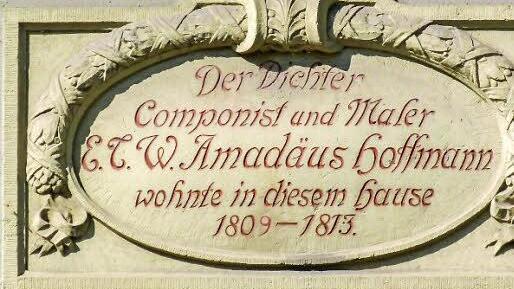 Der Dichter
Componist und Maler
E.T.W. Amadäus Hoffmann
wohnte in diesem Hause
1809–1813.